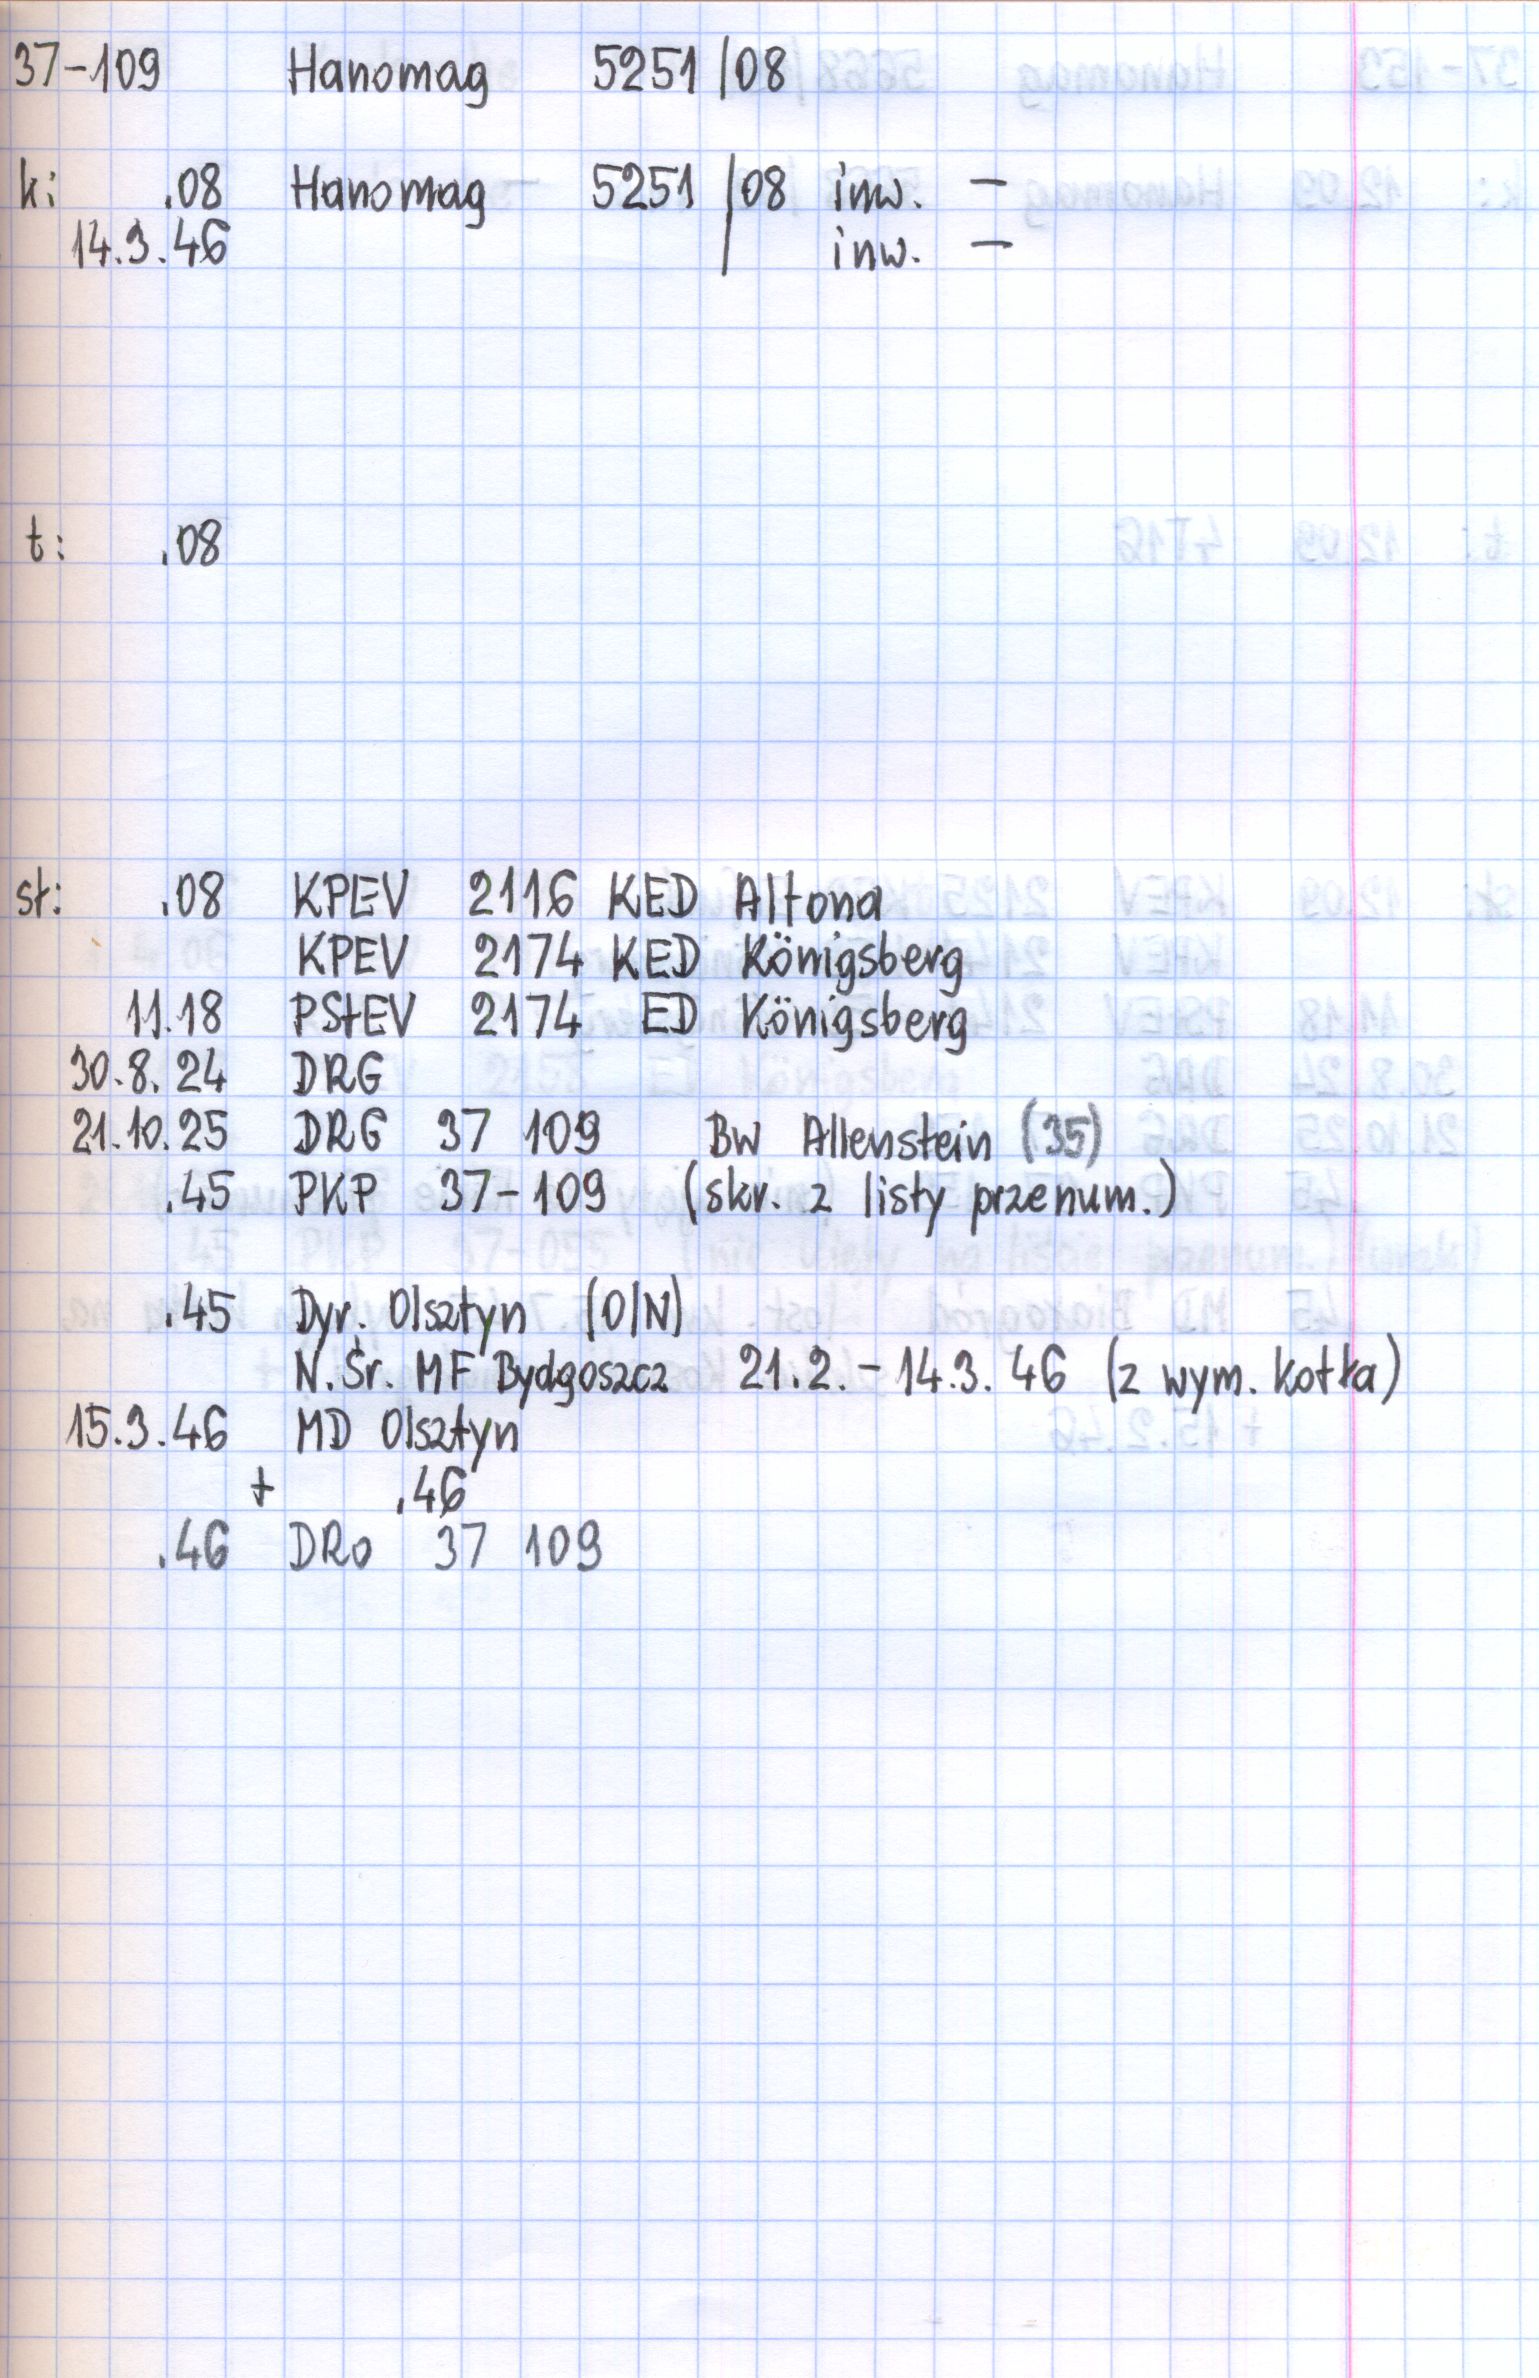 37-109 Hanomag 5251/08
k: .08 Hanomag 5251/08 inw. —
14.3.46 / inw. —
t: .08
st: .08 KPEV 2116 KED Altona
KPEV 2174 KED Königsberg
11.18 PStEV 2174 ED Königsberg
30.8.24 DRG
21.10.25 DRG 37 109 Bw Allenstein (35)
.45 PKP 37-109 (skr. z listy przenum.)
.45 Dyr. Olsztyn (O/N)
N.Śr. MF Bydgoszcz 21.2.-14.3.46 (z wym. kotła)
15.3.46 MD Olsztyn
+ .46
.46 DRo 37 109